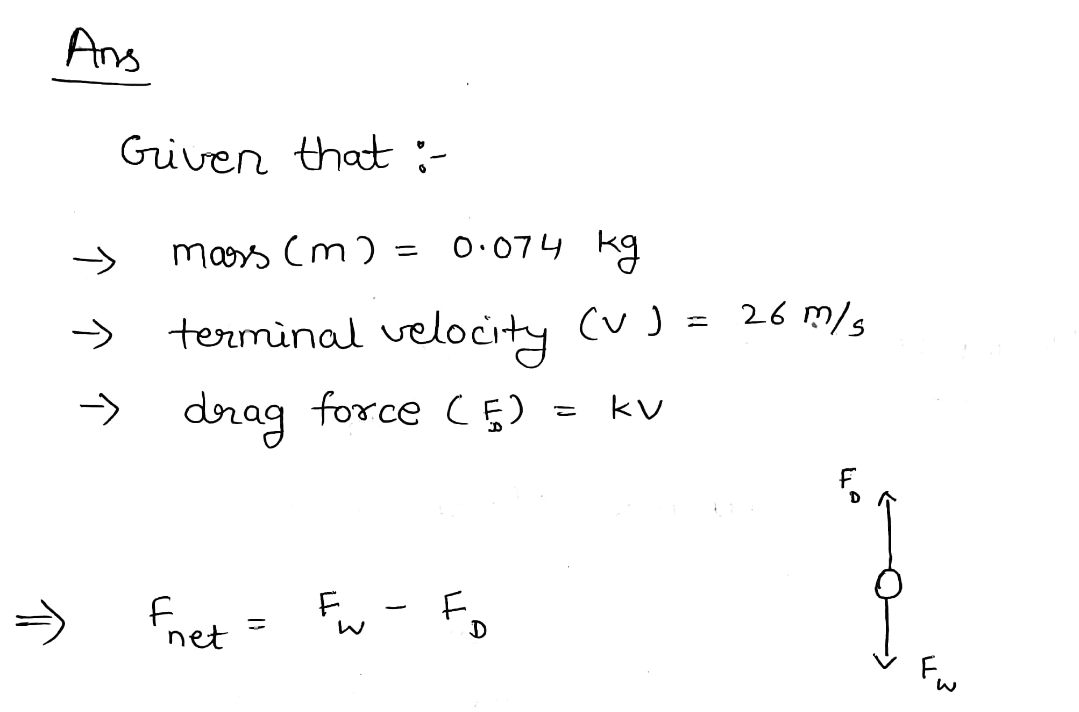 Ans
Given that :-
→ mass (m) = 0.074 kg
→ terminal velocity (v) = 26 m/s
→ drag force (F_D) = kv
F_D
⇒ F_net = F_w - F_D
F_w